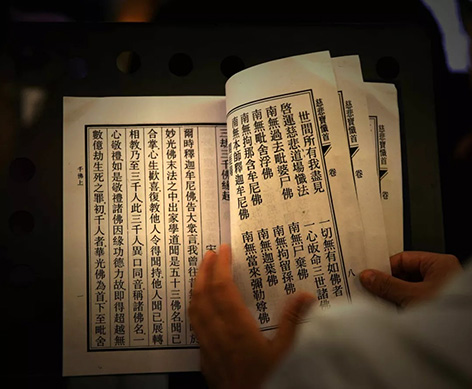 慈悲寶懺首 卷
慈悲寶懺首 卷 八
世間所有我盡見 一切無有如佛者
啓運慈悲道場懺法 一心皈命三世諸佛
南無過去毗婆尸佛 南無尸棄佛
南無毗舍浮佛 南無拘留孫佛
南無拘那含牟尼佛 南無迦葉佛
南無本師釋迦牟尼佛 南無當來彌勒尊佛
三劫三千佛緣起 宋
爾時釋迦牟尼佛告大眾言我曾往昔
妙光佛末法之中出家學道聞是五十三佛名聞已
合掌心生歡喜復教他人令得聞持他人聞已展轉
相教乃至三千人此三千人異口同音稱諸佛名一
心敬禮如是敬禮諸佛因緣功德力故即得超越無
數億劫生死之罪初千人者華光佛為首下至毗舍
千佛上